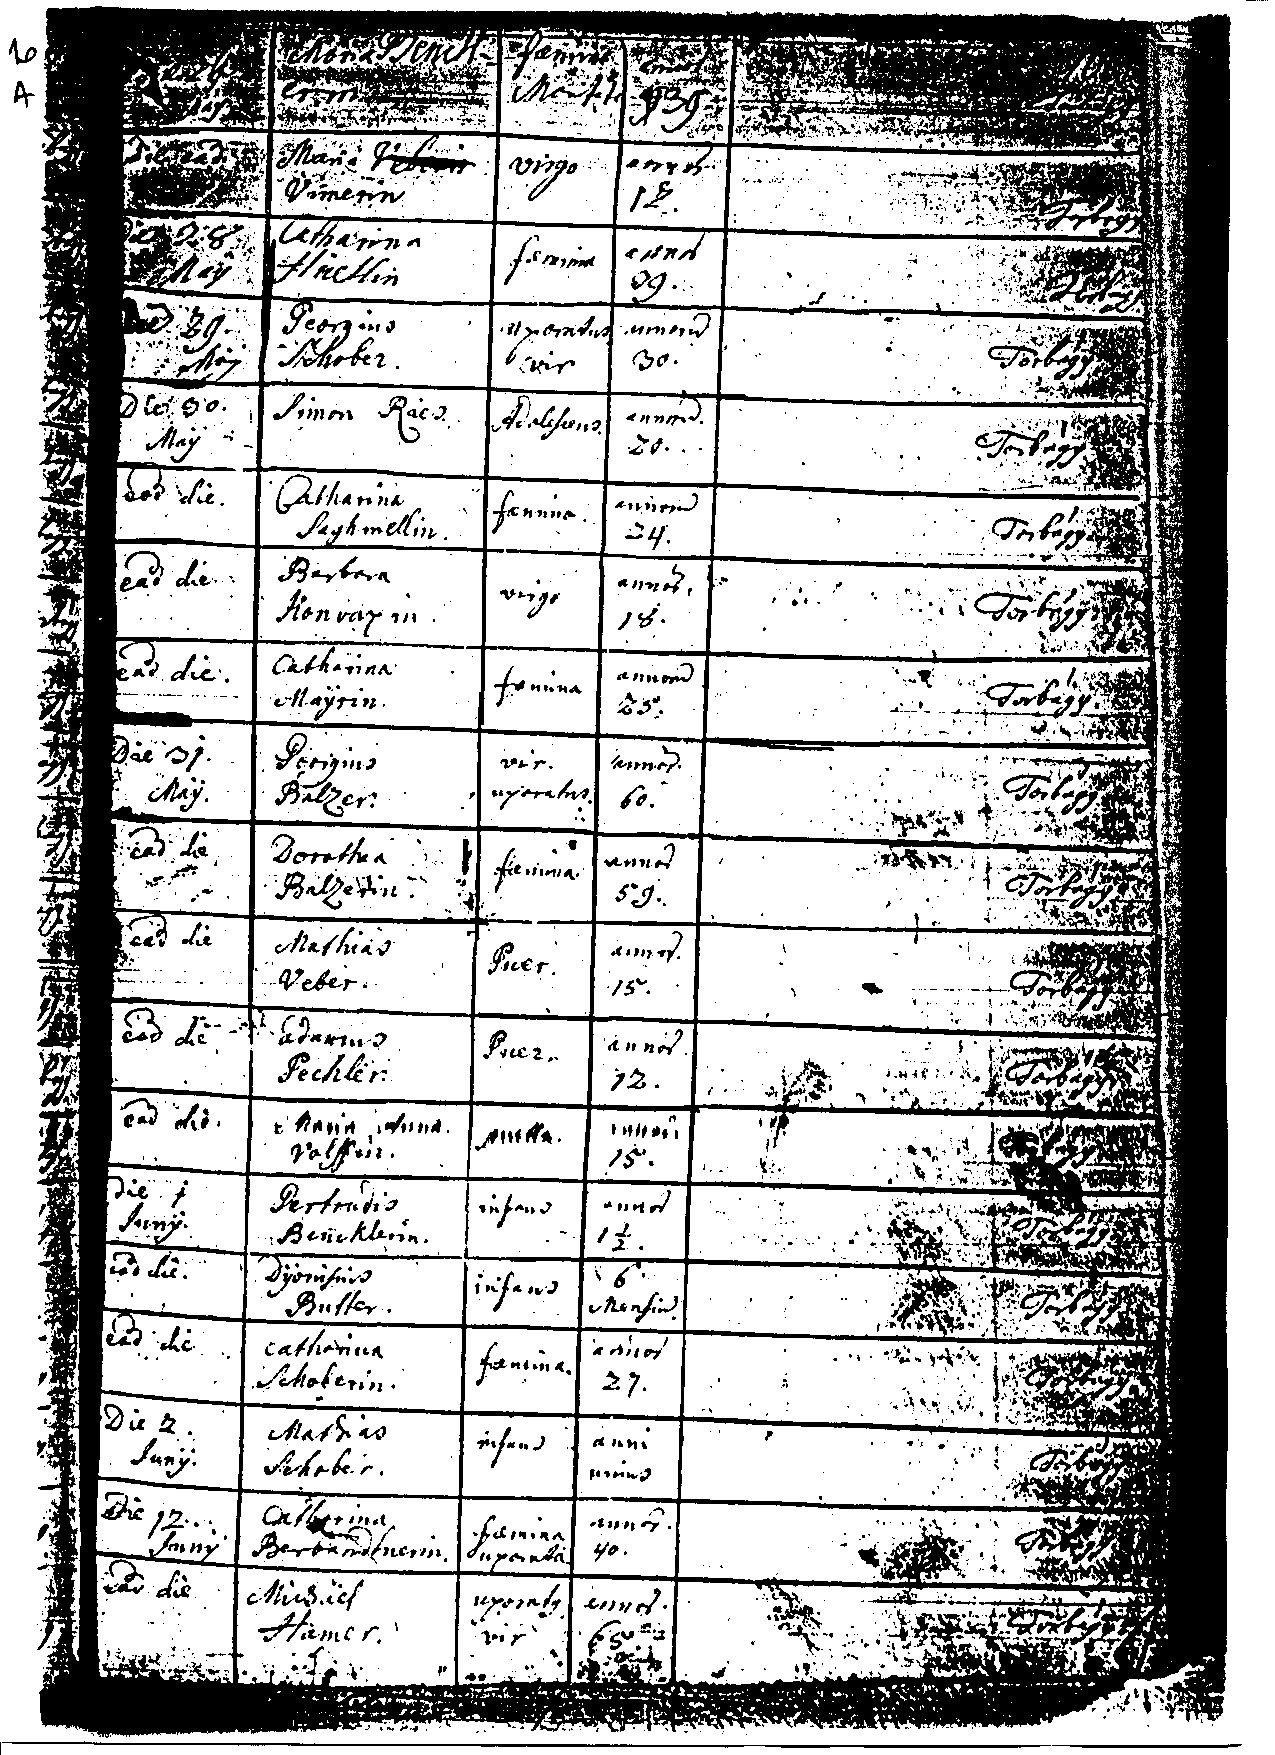 Maria
Vimerin
virgo
annor
18.
Torbagy
28
May
Catharina
fæmina
annor
39.
29.
May
Georgius
Schober.
uxoratus
vir
annorū
30.
Torbágy
Die 30.
May
Simon Racs.
Adolescens
annorū.
20.
Torbágy
ead die.
Catharina
Saghmellin.
fæmina.
annorū
24.
Torbágy
ead die
Barbara
Konrayin.
virgo
annor.
18.
Torbágy
ead die.
Catharina
Mayrin.
fæmina
annorū
25.
Torbágy.
Die 31.
May.
Georgius
Balzer.
vir.
uxoratus.
annor.
60.
Torbágy
ead die
Dorothea
Balzerin.
fæmina.
annor
59.
Torbágy
ead die
Mathias
Veber.
Puer.
annor.
15.
Torbágy
ead die
Adamus
Pechler.
Puer.
annor.
12.
Torbágy
ead die.
Maria Anna.
Volffin.
puella.
annor
15.
Die 1
Juny.
Gertrudis
Bencklerin.
infans
annor
1 1/2.
Torbágy
ead die.
Dyonisius
Butler.
infans
6
Mensiū.
Torbágy
ead die
Catharina
Schoberin.
fæmina.
annor
27.
Torbágy
Die 2.
Juny.
Mathias
Schober.
infans
anni
unius
Torbágy
Die 12.
Juny
Catherina
fæmina
uxorata
annor.
40.
Torbágy
ead die
Michael
Hamer.
uxoratg
vir
annor.
65
Torbágy